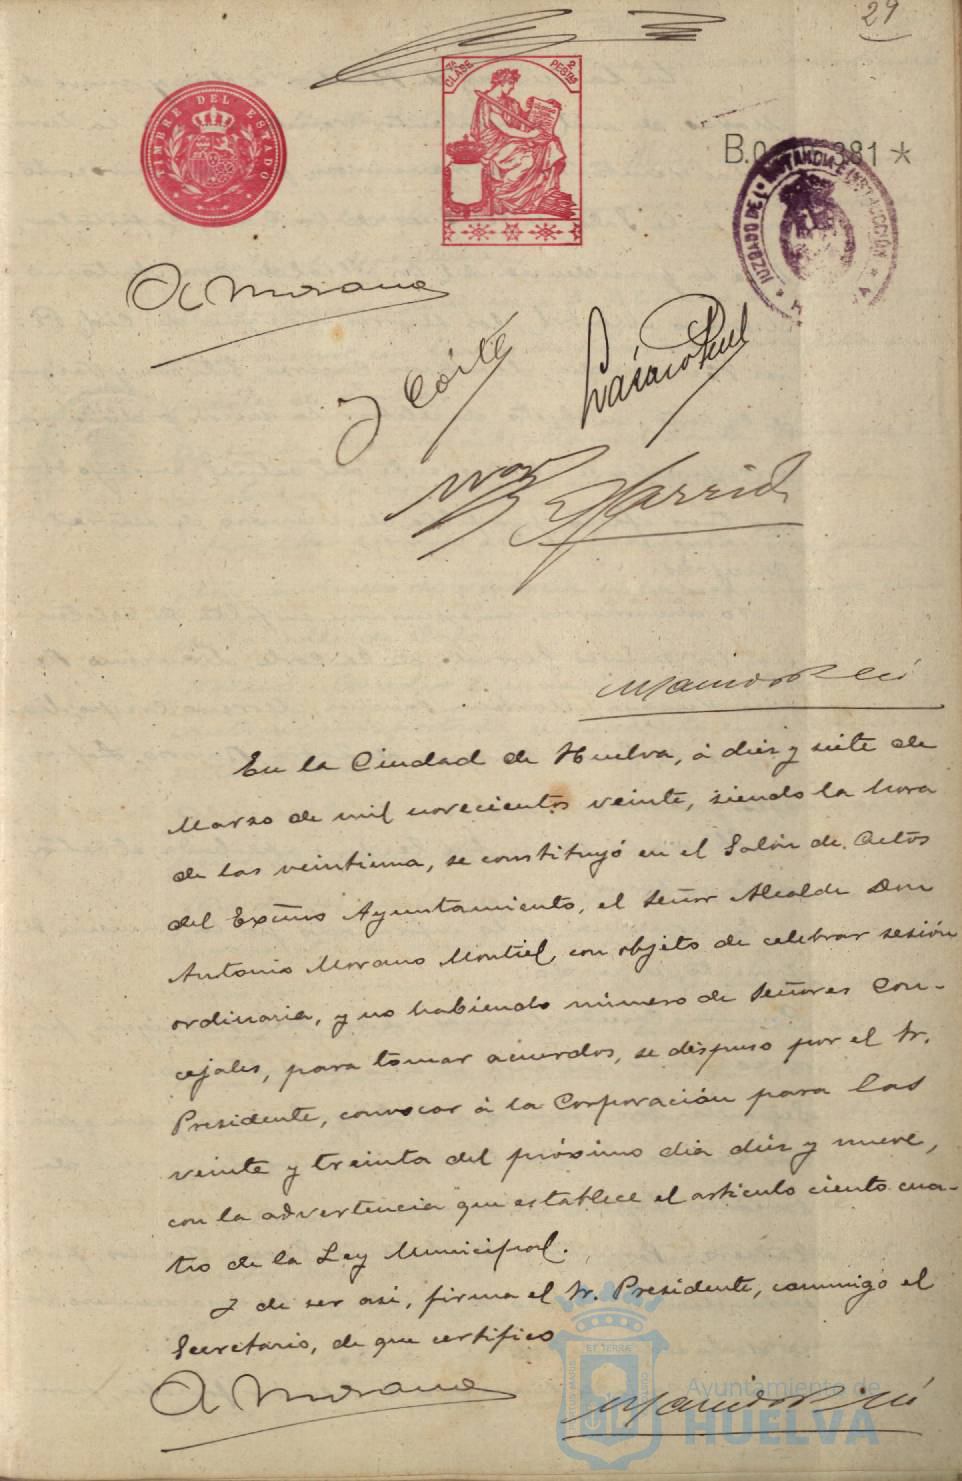 29
TIMBRE DEL ESTADO
7ª CLASE
2 PESETAS
B.0 381 *
JUZGADO DE 1ª INSTANCIA E INSTRUCCIÓN
A Morano
J Corte
En la Ciudad de Huelva, á diez y siete de
Marzo de mil novecientos veinte, siendo la hora
de las veintiuna, se constituyó en el Salón de Actos
del Excmo Ayuntamiento, el Señor Alcalde Don
Antonio Morano Montiel, con objeto de celebrar sesión
ordinaria, y no habiendo número de Señores Con-
cejales, para tomar acuerdos, se dispuso por el Sr.
Presidente, convocar á la Corporación para las
veinte y treinta del próximo dia diez y nueve,
con la advertencia que establece el articulo ciento cua-
tro de la Ley Municipal.
Y de ser asi, firma el Sr. Presidente, conmigo el
Secretario, de que certifico
A Morano
ET TERRAE
Ayuntamiento de
HUELVA